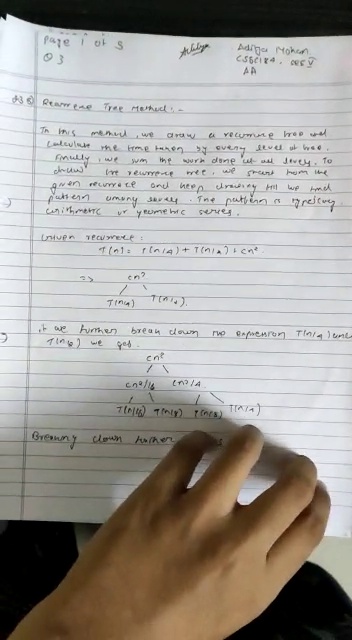 Page 1 of 3
Q 3
Aditya Mohan
AA
Recurrence Tree Method :-
In this method, we draw a recurrence tree and
calculate the time taken by every level of tree.
Finally, we sum the work done at all levels. To
draw the recurrence tree, we start from the
given recurrence and keep drawing till we find
pattern among levels. The pattern is typically
arithmetic or geometric series.
Given recurrence :
T(n) = T(n/4) + T(n/2) + cn²
=> cn²
T(n/4) T(n/2)
if we further break down the expression T(n/4) and
T(n/2) we get.
cn²
cn²/16 cn²/4
T(n/16) T(n/8) T(n/8) T(n/4)
Breaking down further